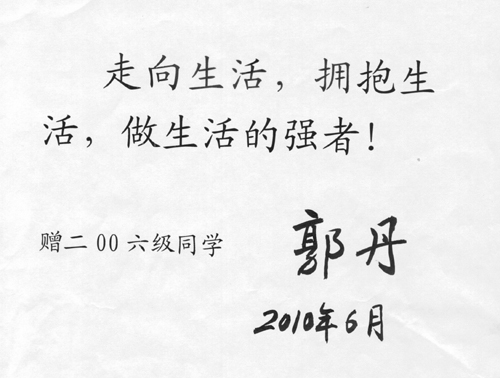 走向生活，拥抱生
活，做生活的强者！
赠二00六级同学
郭丹
2010年6月